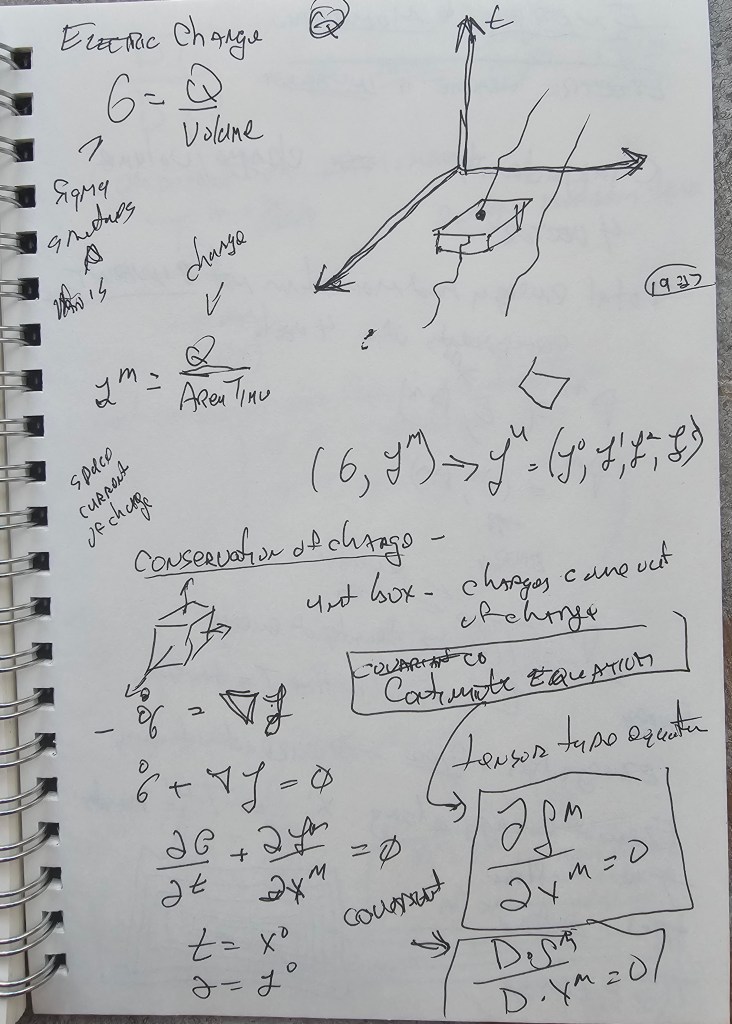 Electric Charge
Q
t
σ = Q / Volume
Sigma
charge
J^m = Q / Area Time
space
current
of charge
(σ, J^m) ⇒ J^μ = (J^0, J^1, J^2, J^3)
Conservation of charge -
unit box - charges come out
of charge
COVARIANT CO
Continuite EQUATION
- σ̇ = ∇J
σ̇ + ∇J = 0
tensor type equation
∂σ/∂t + ∂J^m/∂x^m = 0
∂J^m/∂x^m = 0
covariant
t = x^0
D·J^m/D·x^m = 0